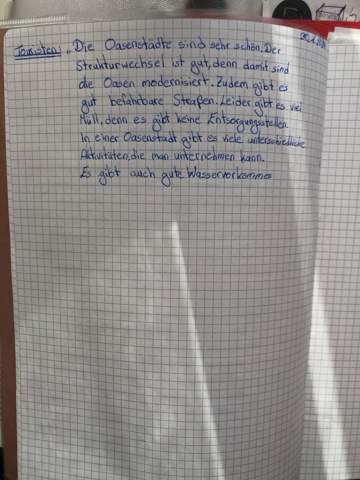 Touristen: „Die Oasenstädte sind sehr schön. Der
Strukturwechsel ist gut, denn damit sind
die Oasen modernisiert. Zudem gibt es
gut befahrbare Straßen. Leider gibt es viel
Müll, denn es gibt keine Entsorgungsstellen.
In einer Oasenstadt gibt es viele unterschiedliche
Aktivitäten, die man unternehmen kann.
Es gibt auch gute Wasservorkommen